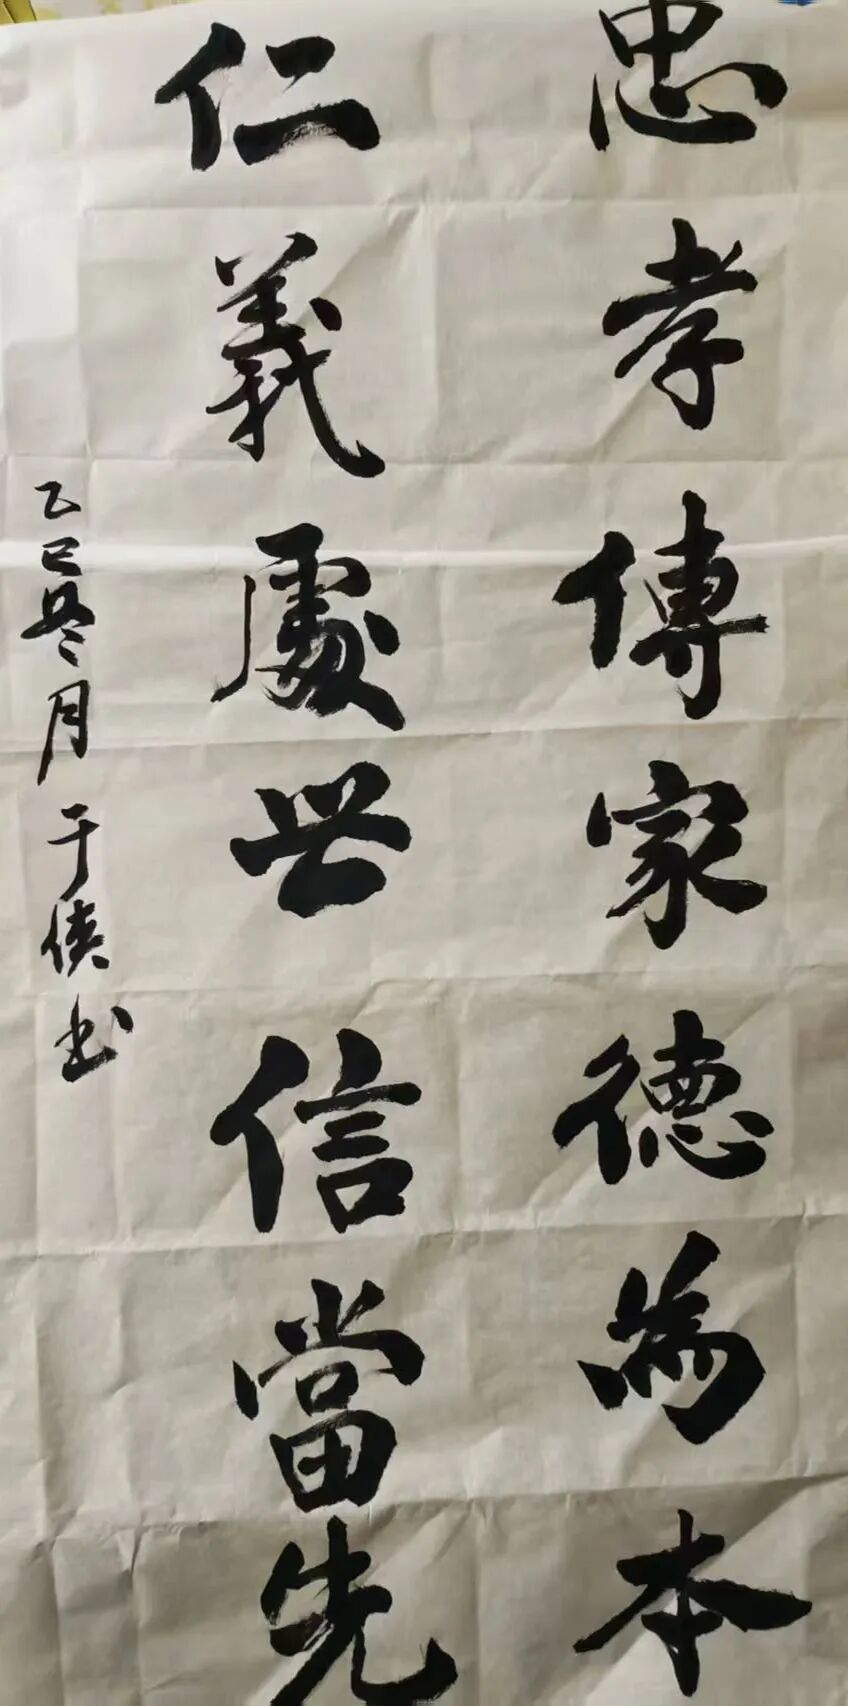 忠孝傳家德為本
仁義處世信當先
乙巳冬月于俠书